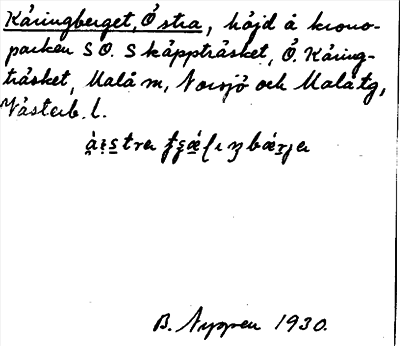 Käringberget, Östra, höjd å krono-
parken S O. Skäppträsket, Ö. Käring-
träsket, Malå sn, Norsjö och Malå tg,
Västerb. l.
B. Nyppen 1930.